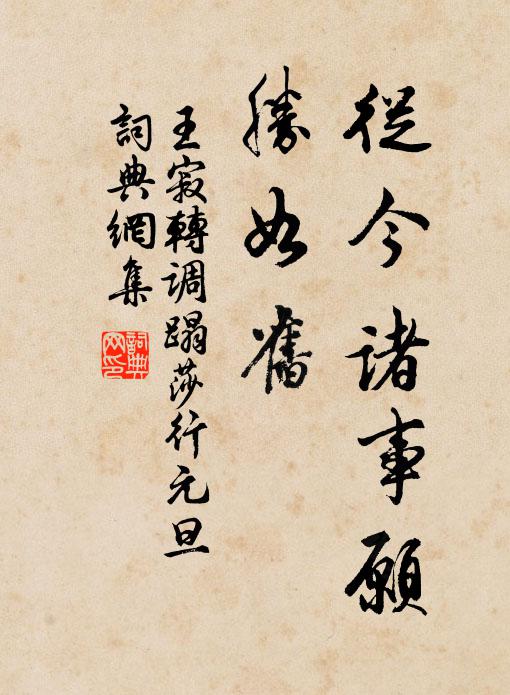 從今諸事願
勝如舊
王寂轉調蹋莎行元旦
詞典網集
詞典网印